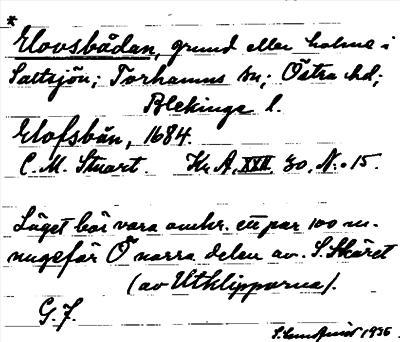 *
Elovsbådan, grund eller holme i
Saltsjön; Torhamns sn; Östra hd;
Blekinge l.
Elofsbån, 1684.
C. M. Stuart. Kr. A, XXII, 30, N:o 15.
Läget bör vara omkr. ett par 100 m.
ungefär Ö norra delen av S. Skäret
(av Utklipporna).
G. F.
S. Lundqvist 1935.